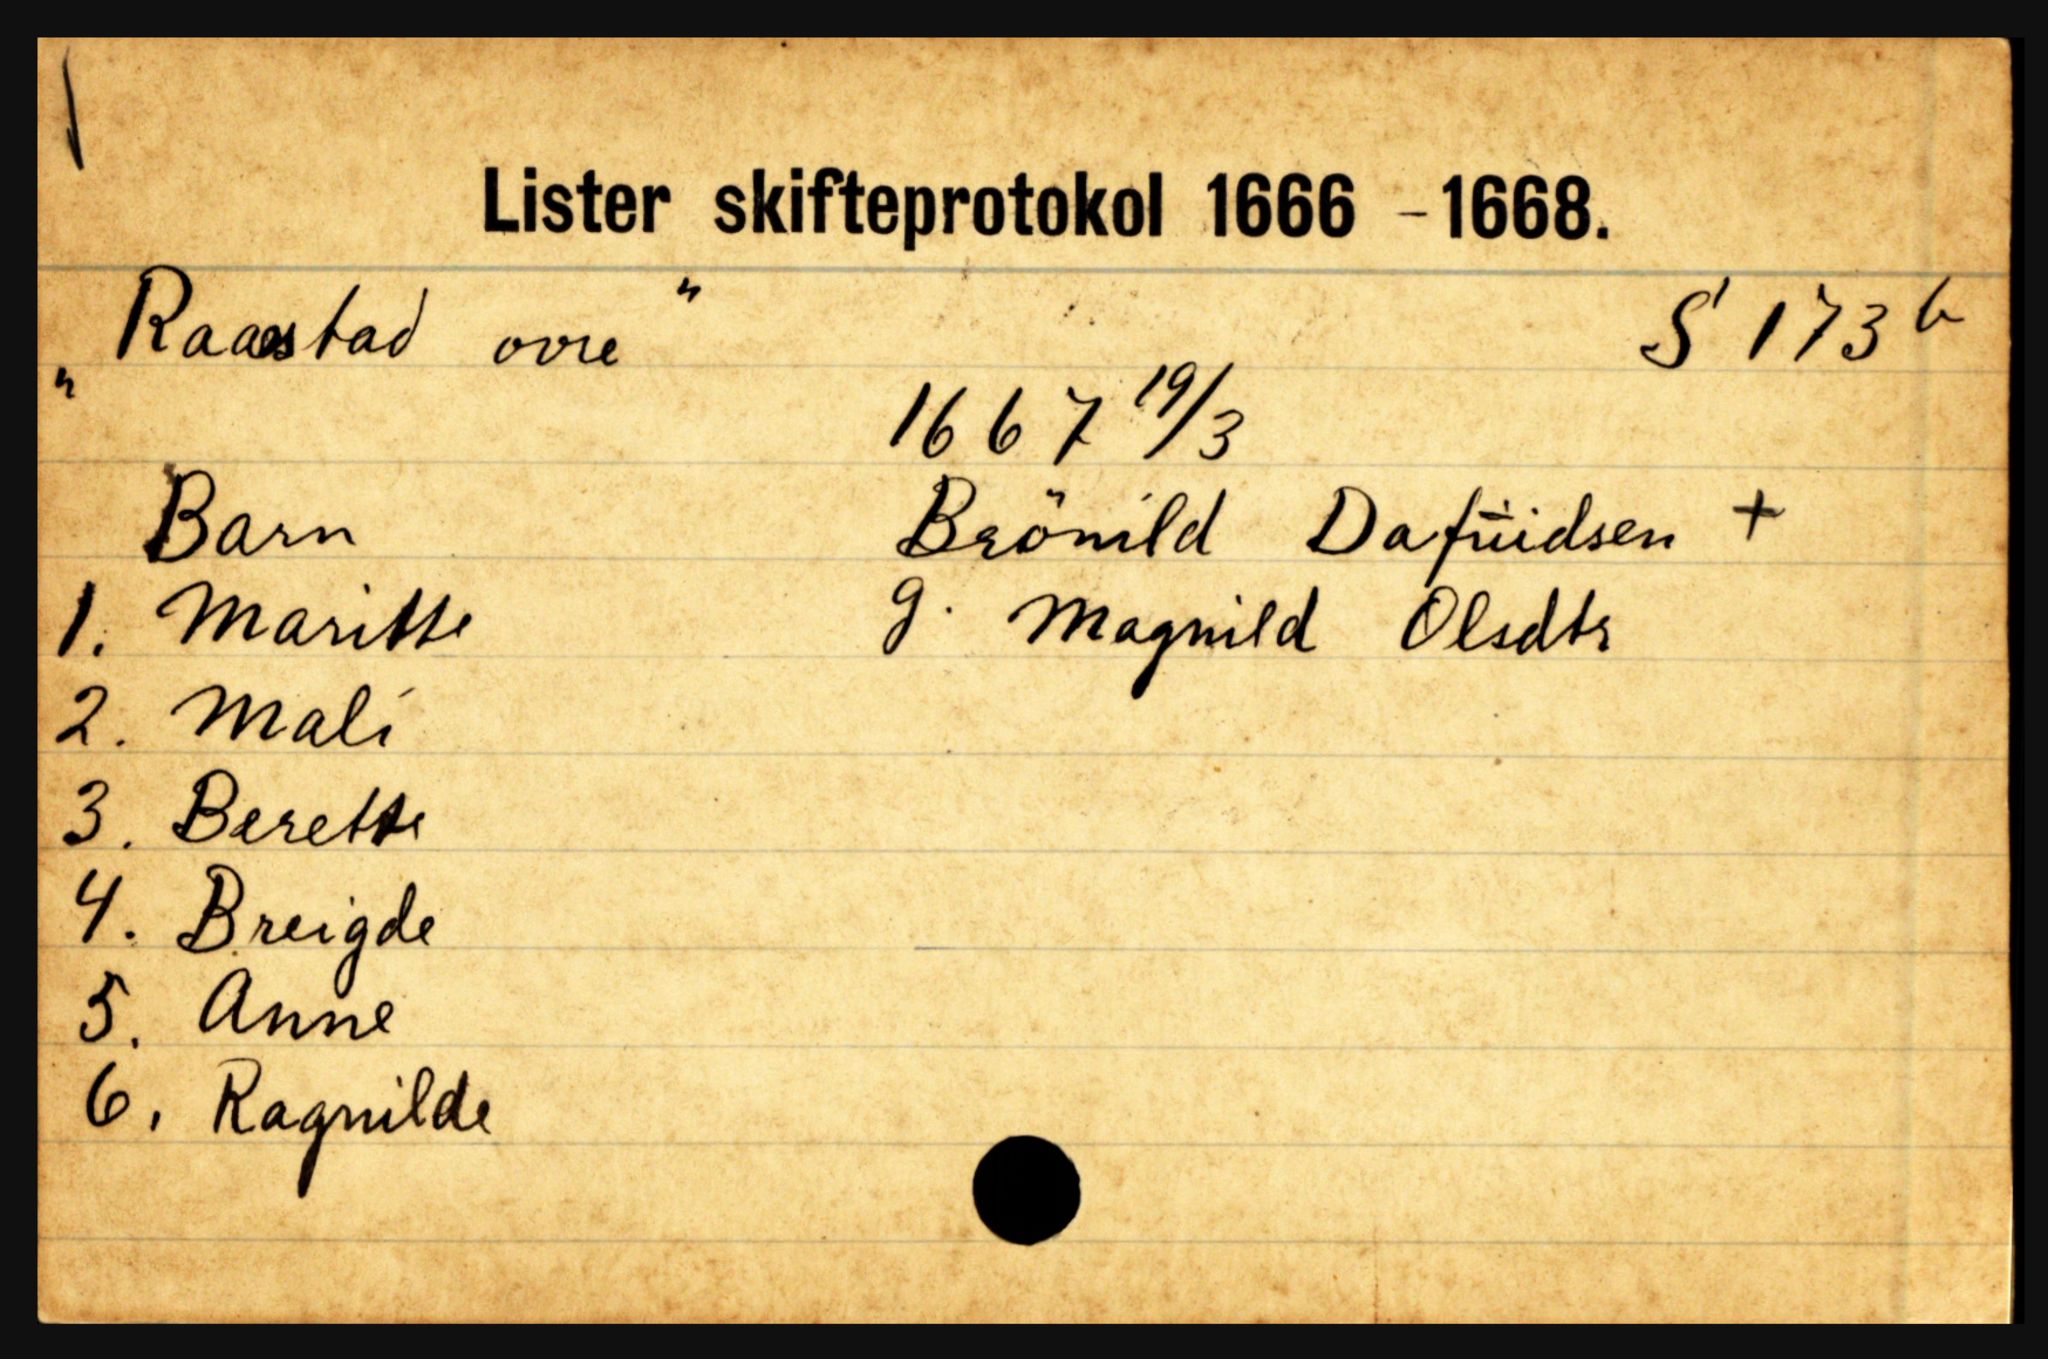 Lister skifteprotokol 1666 - 1668.
„Raastad ovre" S 173 b
1667 19/3
Barn Brönild Dafüidsen +
1. Maritte g. Magnild Olsdtr
2. Mali
3. Berette
4. Breigde
5. Anne
6. Ragnilde